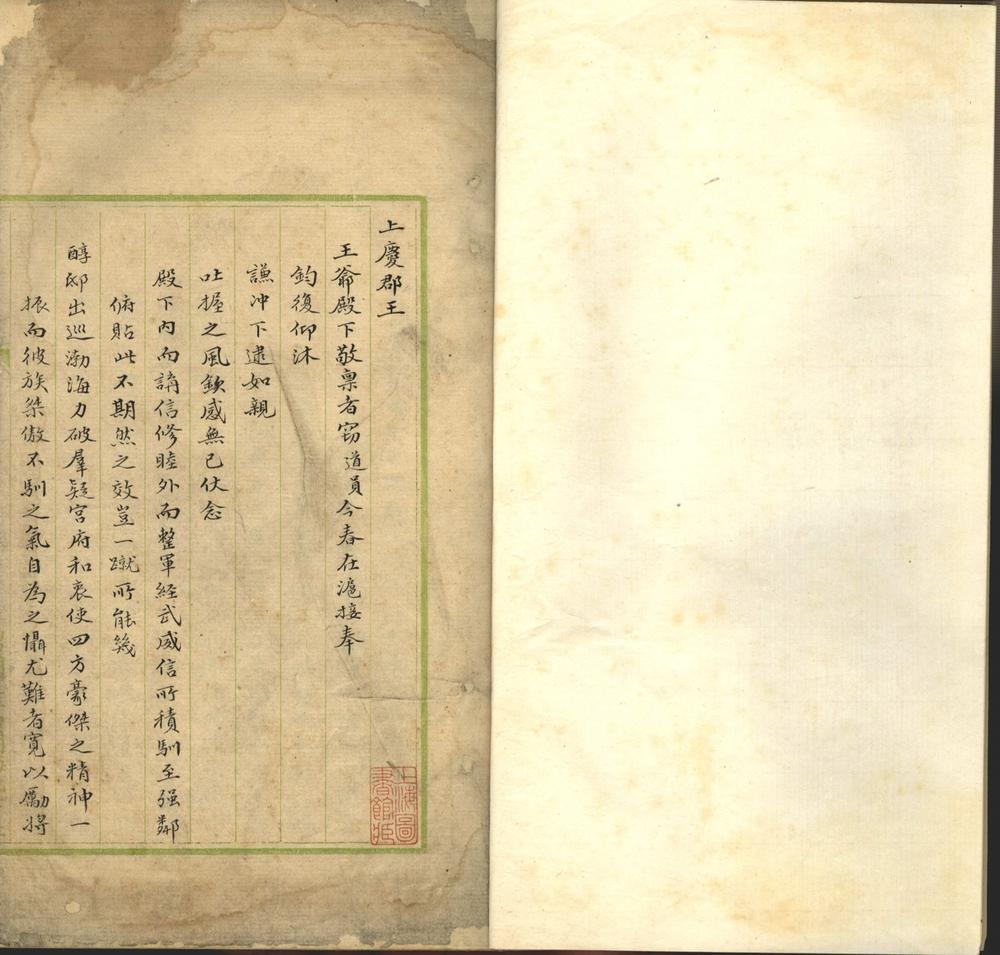 上慶郡王
王爺殿下敬稟者竊道員今春在滬接奉
鈞復仰沐
謙沖下逮如親
吐握之風欽感無已伏念
殿下內而講信修睦外而整軍經武威信所積馴至强鄰
俯貼此不期然之效豈一蹴所能幾
醇邸出巡渤海力破羣疑宮府和衷使四方豪傑之精神一
振而彼族桀傲不馴之氣自為之懾尤難者寬以勵將
上海圖書館藏